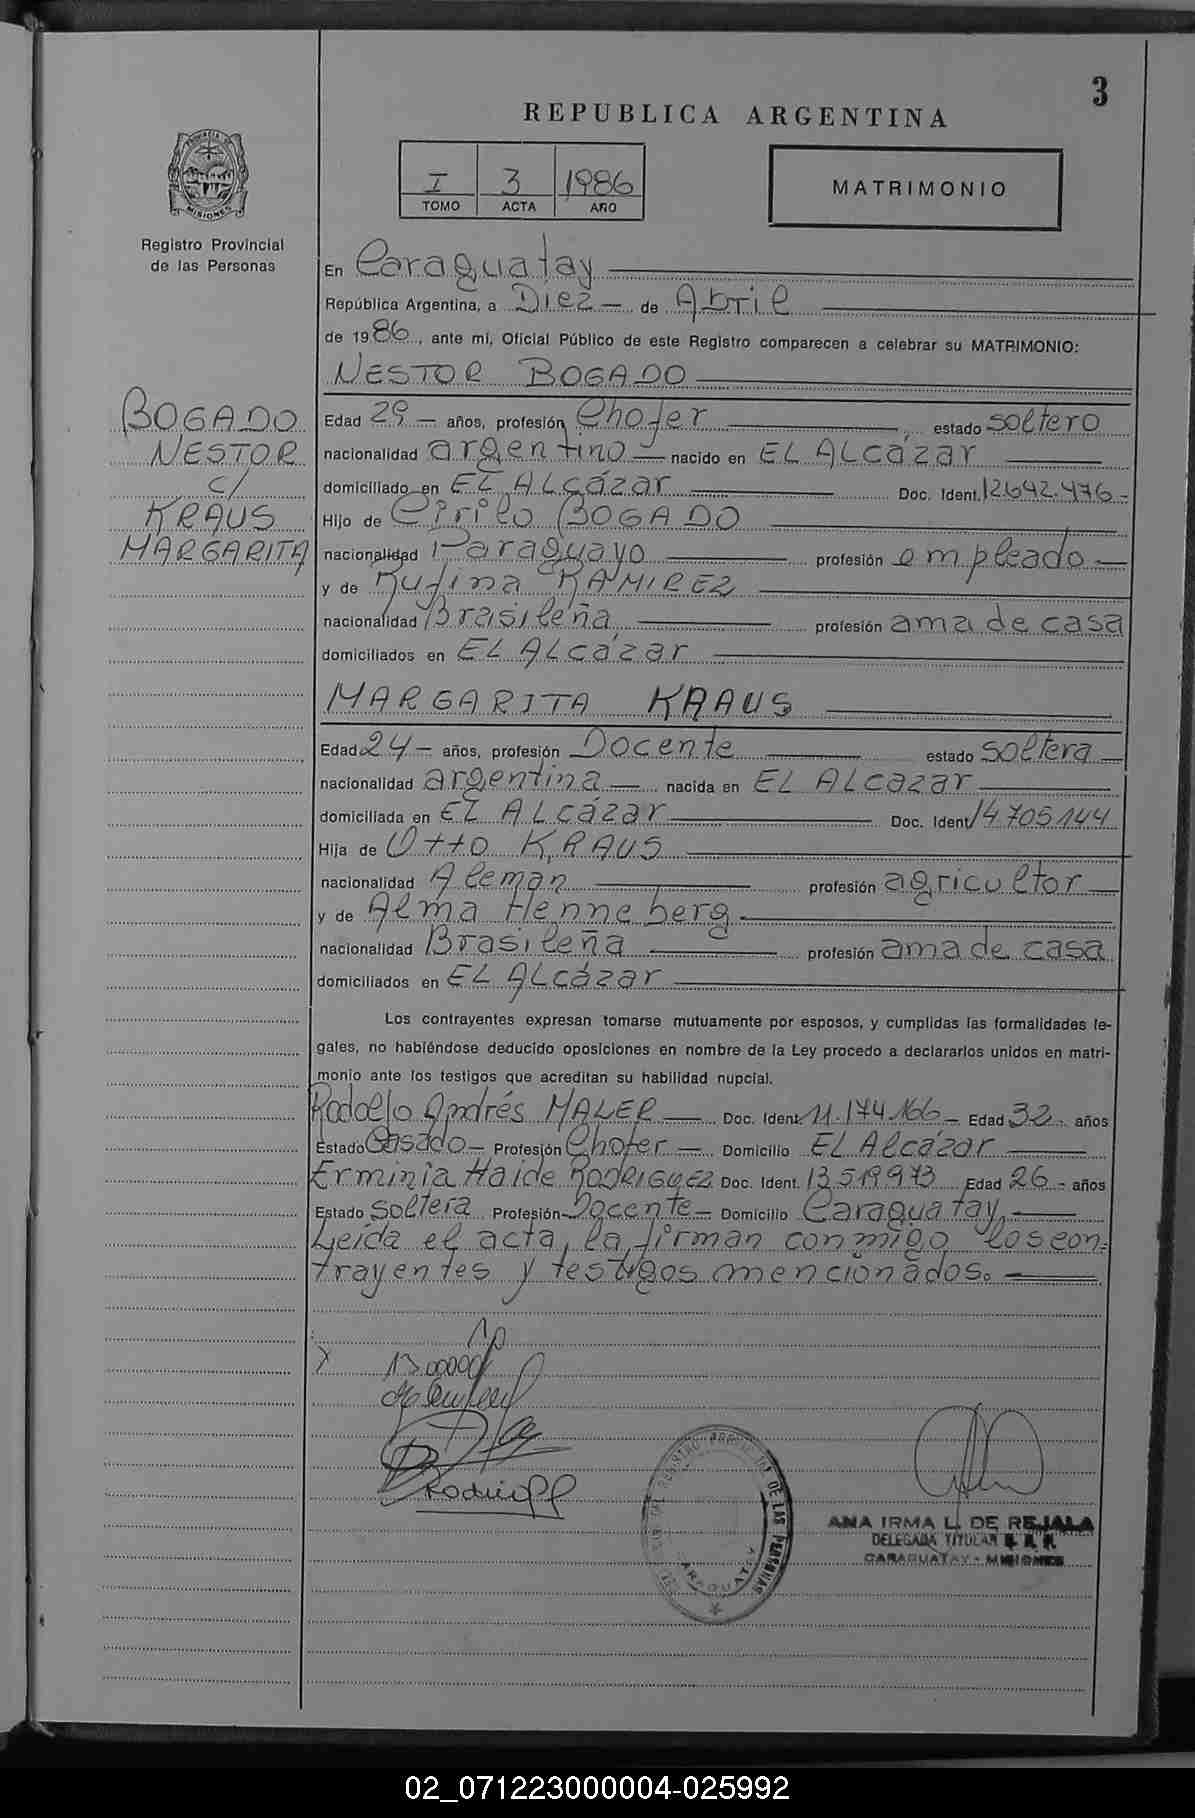 3
REPUBLICA ARGENTINA
PROVINCIA DE
MISIONES
Registro Provincial
de las Personas
I 3 1986
TOMO ACTA AÑO
MATRIMONIO
En Caraguatay
República Argentina, a Diez de Abril
de 1986, ante mí, Oficial Público de este Registro comparecen a celebrar su MATRIMONIO:
NESTOR BOGADO
BOGADO
NESTOR
c/
KRAUS
MARGARITA
Edad 29 — años, profesión Chofer estado soltero
nacionalidad argentino — nacido en EL ALcázar
domiciliado en EL ALcázar Doc. Ident. 12.642.476-
Hijo de Cirilo BOGADO
nacionalidad Paraguayo profesión empleado —
y de Rufina RAMIREZ
nacionalidad Brasileña profesión ama de casa
domiciliados en EL ALcázar
MARGARITA KRAUS
Edad 24 — años, profesión Docente estado soltera —
nacionalidad argentina — nacida en EL ALcazar
domiciliada en EL ALcázar Doc. Ident 14.705.144
Hija de Otto KRAUS
nacionalidad Aleman profesión agricultor —
y de Alma Henneberg
nacionalidad Brasileña profesión ama de casa
domiciliados en EL ALcázar
Los contrayentes expresan tomarse mutuamente por esposos, y cumplidas las formalidades le-
gales, no habiéndose deducido oposiciones en nombre de la Ley procedo a declararlos unidos en matri-
monio ante los testigos que acreditan su habilidad nupcial.
Rodolfo Andrés MALER — Doc. Ident. 11.174.166 — Edad 32 - años
Estado Casado — Profesión Chofer — Domicilio EL Alcázar
Erminia Haide RODRIGUEZ Doc. Ident. 13.519.973 Edad 26 - años
Estado soltera Profesión Docente — Domicilio Caraguatay
Leída el acta, la firman conmigo los con=
trayentes y testigos mencionados.
ANA IRMA L. DE REJALA
DELEGADA TITULAR
CARAGUATAY - MISIONES